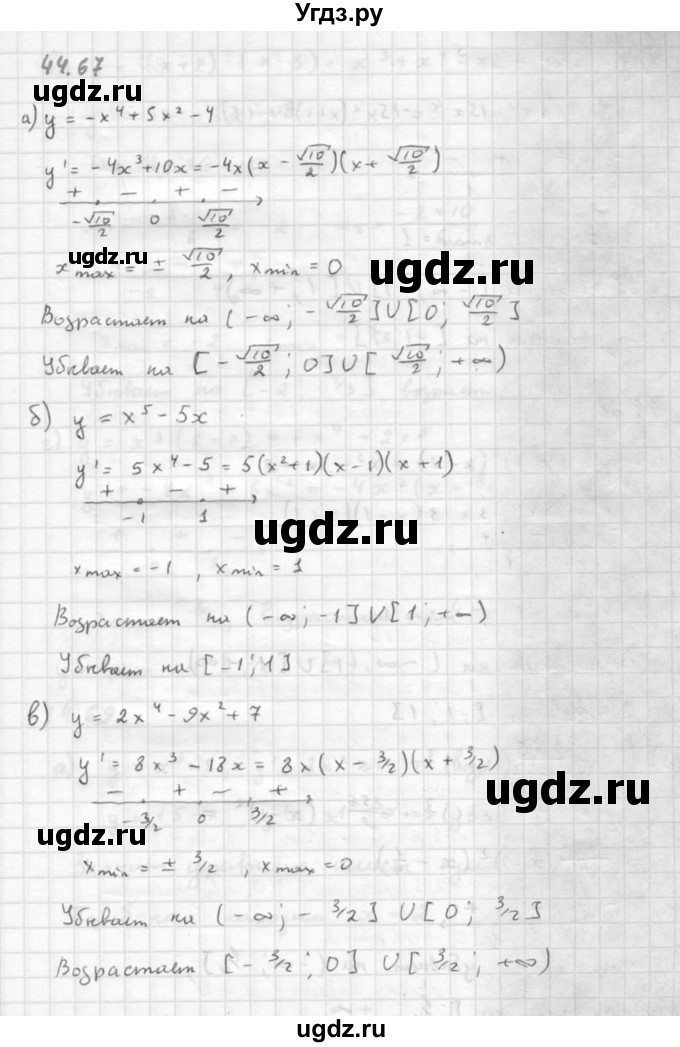 Угдз.ру
44.67
ugdz.ru
а) y = -x⁴ + 5x² - 4
y' = -4x³ + 10x = -4x(x - √10/2)(x + √10/2)
+ - + -
-√10/2 0 √10/2
ugdz.ru
x max = ± √10/2, x min = 0
ugdz.ru
Возрастает на (-∞; -√10/2] U [0; √10/2]
Убывает на [-√10/2; 0] U [√10/2; +∞)
б) y = x⁵ - 5x
y' = 5x⁴ - 5 = 5(x²+1)(x-1)(x+1)
+ - +
-1 1
ugdz.ru
x max = -1, x min = 1
Возрастает на (-∞; -1] U [1; +∞)
Убывает на [-1; 1]
в) y = 2x⁴ - 9x² + 7
y' = 8x³ - 18x = 8x(x - 3/2)(x + 3/2)
- + - +
-3/2 0 3/2
ugdz.ru
ugdz.ru
x min = ± 3/2, x max = 0
Убывает на (-∞; -3/2] U [0; 3/2]
Возрастает [-3/2; 0] U [3/2; +∞)
ugdz.ru